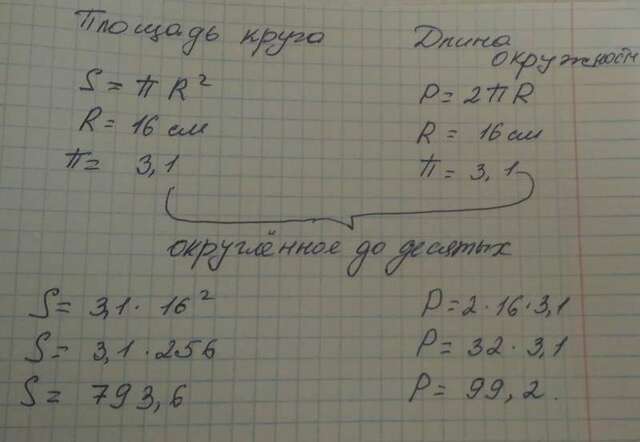 Площадь круга
S = π R²
R = 16 см
π = 3,1
Длина
окружности
P = 2πR
R = 16 см
π = 3,1
округлённое до десятых
S = 3,1 · 16²
S = 3,1 · 256
S = 793,6
P = 2 · 16 · 3,1
P = 32 · 3,1
P = 99,2.